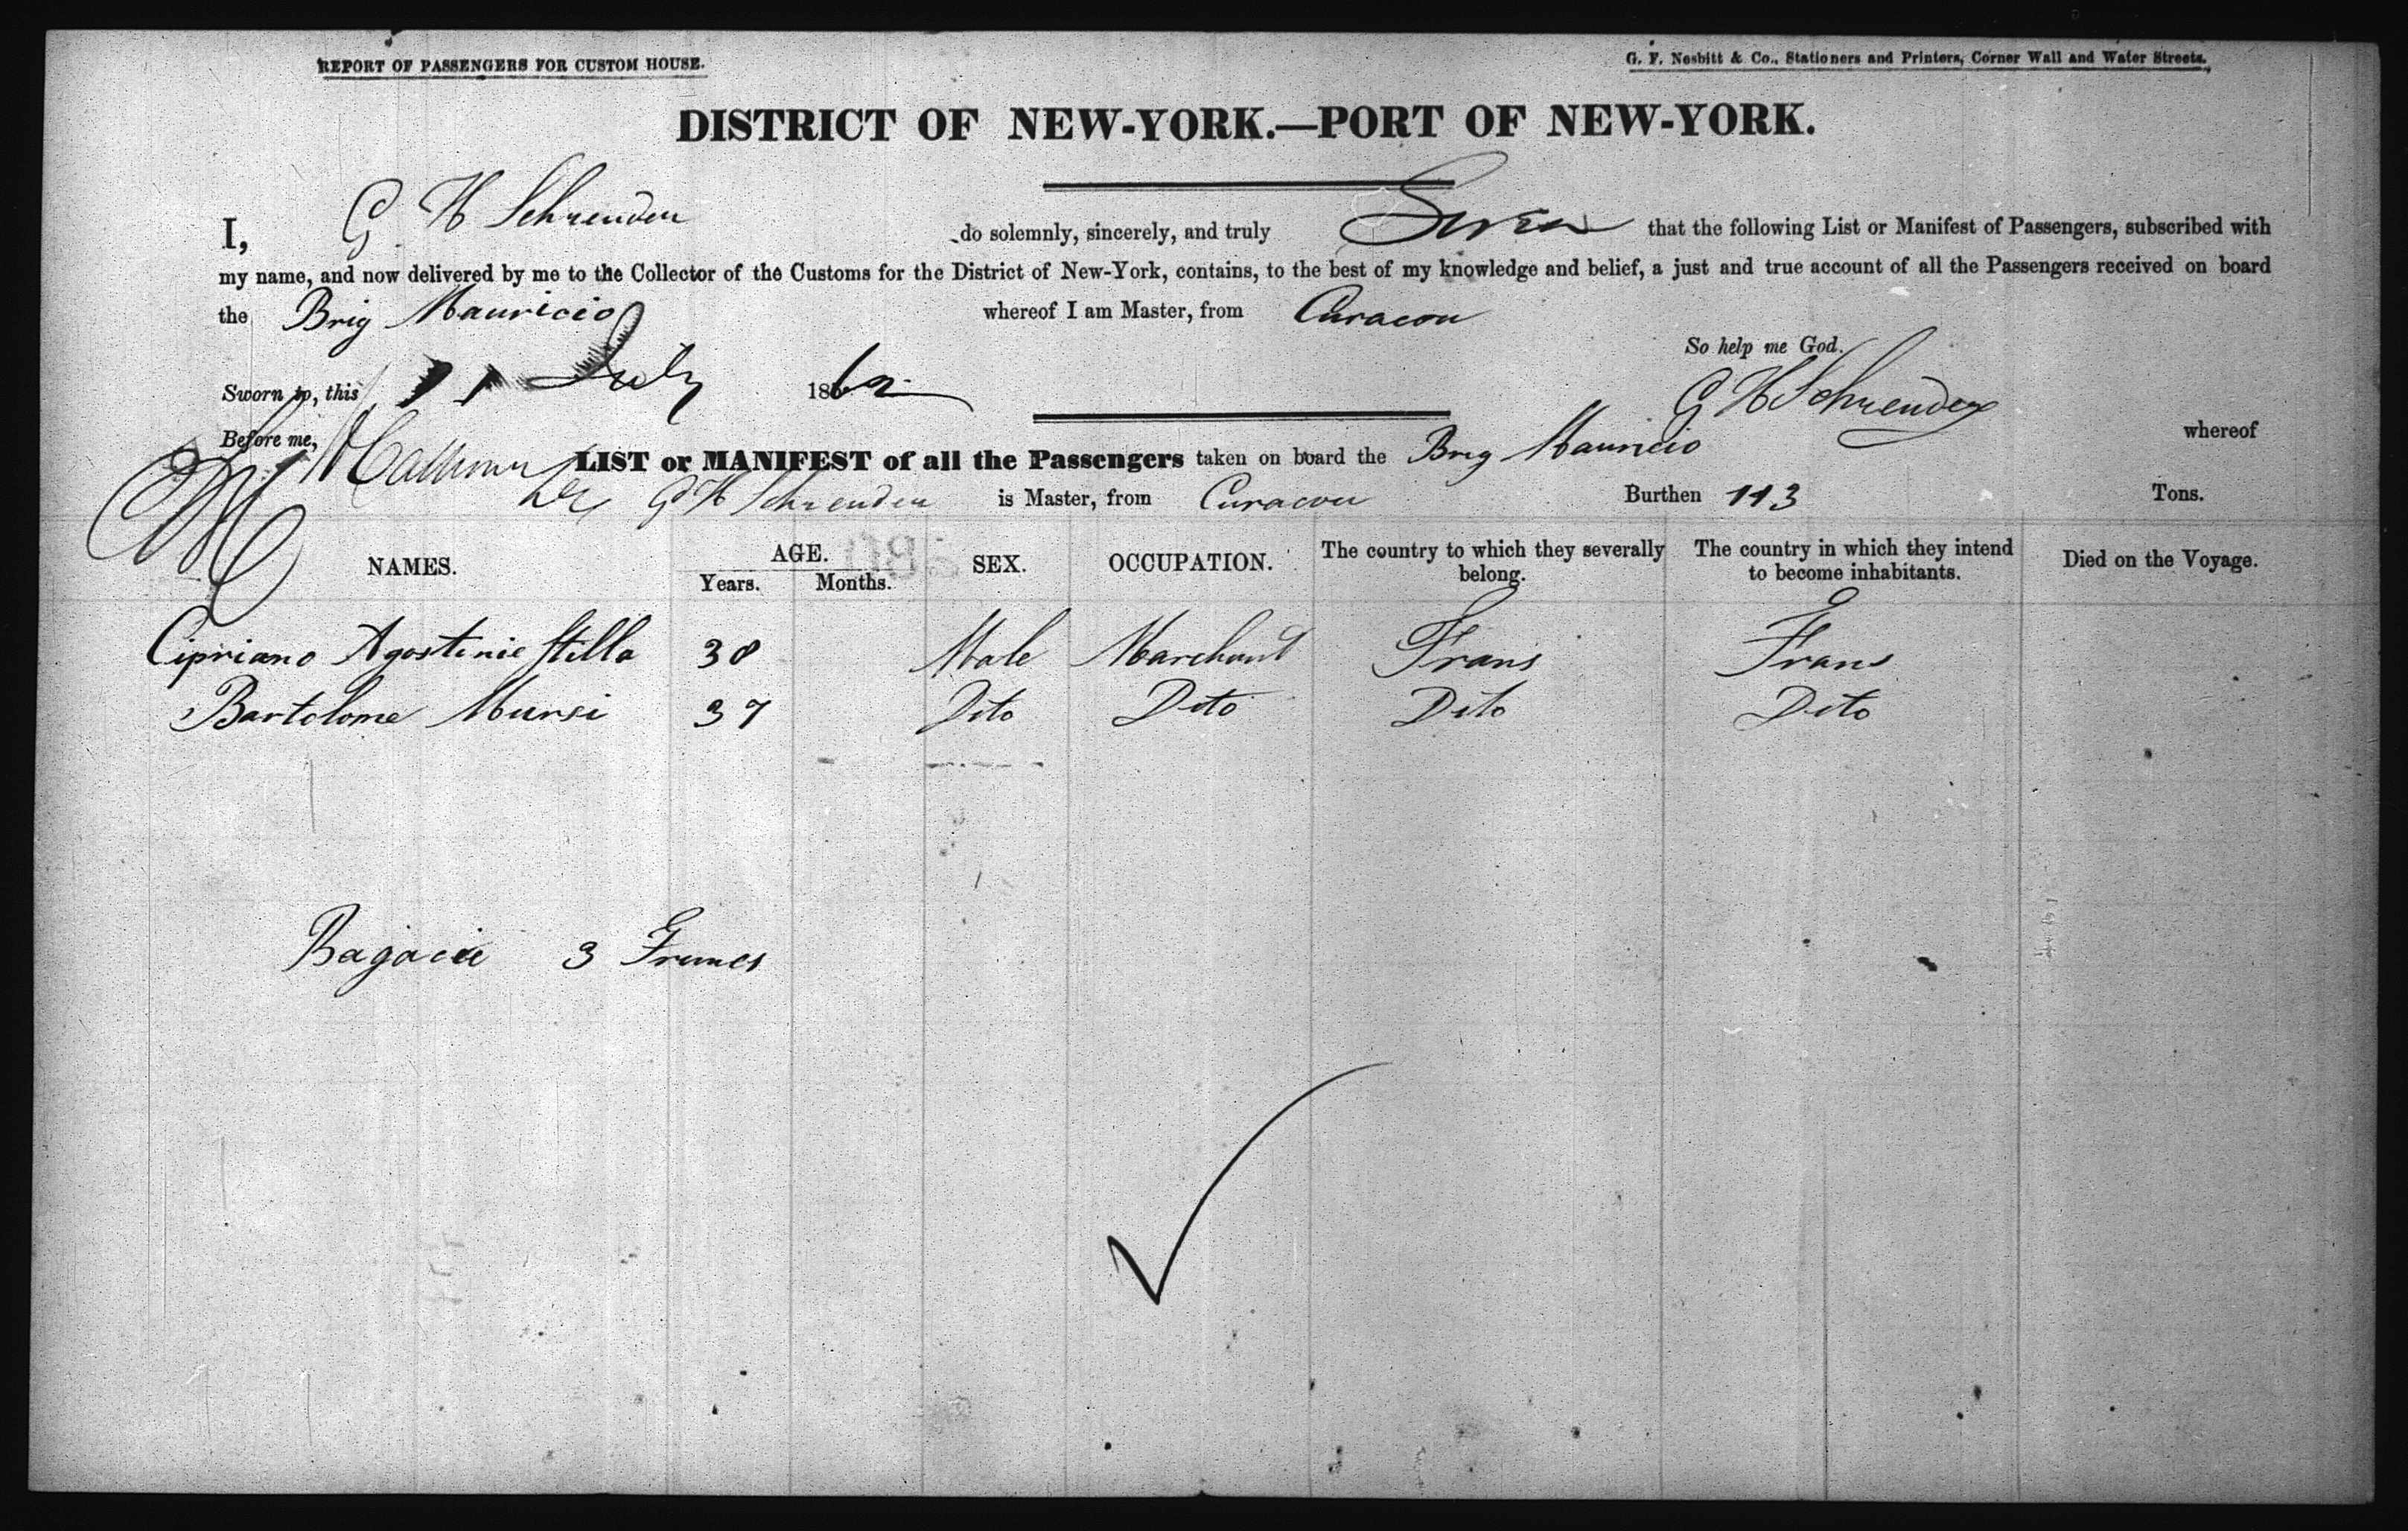 REPORT OF PASSENGERS FOR CUSTOM HOUSE.
G. F. Nesbitt & Co., Stationers and Printers, Corner Wall and Water Streets.
DISTRICT OF NEW-YORK.—PORT OF NEW-YORK.
I, G. H Schreuder do solemnly, sincerely, and truly Swear that the following List or Manifest of Passengers, subscribed with
my name, and now delivered by me to the Collector of the Customs for the District of New-York, contains, to the best of my knowledge and belief, a just and true account of all the Passengers received on board
the Brig Mauricio whereof I am Master, from Curacou
So help me God.
Sworn to, this 11 July 1862
G H Schreuder
Before me,
LIST or MANIFEST of all the Passengers taken on board the Brig Mauricio whereof
G H Schreuder is Master, from Curacou Burthen 113 Tons.
NAMES. AGE. Years. Months. SEX. OCCUPATION. The country to which they severally belong. The country in which they intend to become inhabitants. Died on the Voyage.
Cipriano Agostinie Stilla 38 Male Marchant Frans Frans
Bartolome Mursi 37 Dito Dito Dito Dito
3